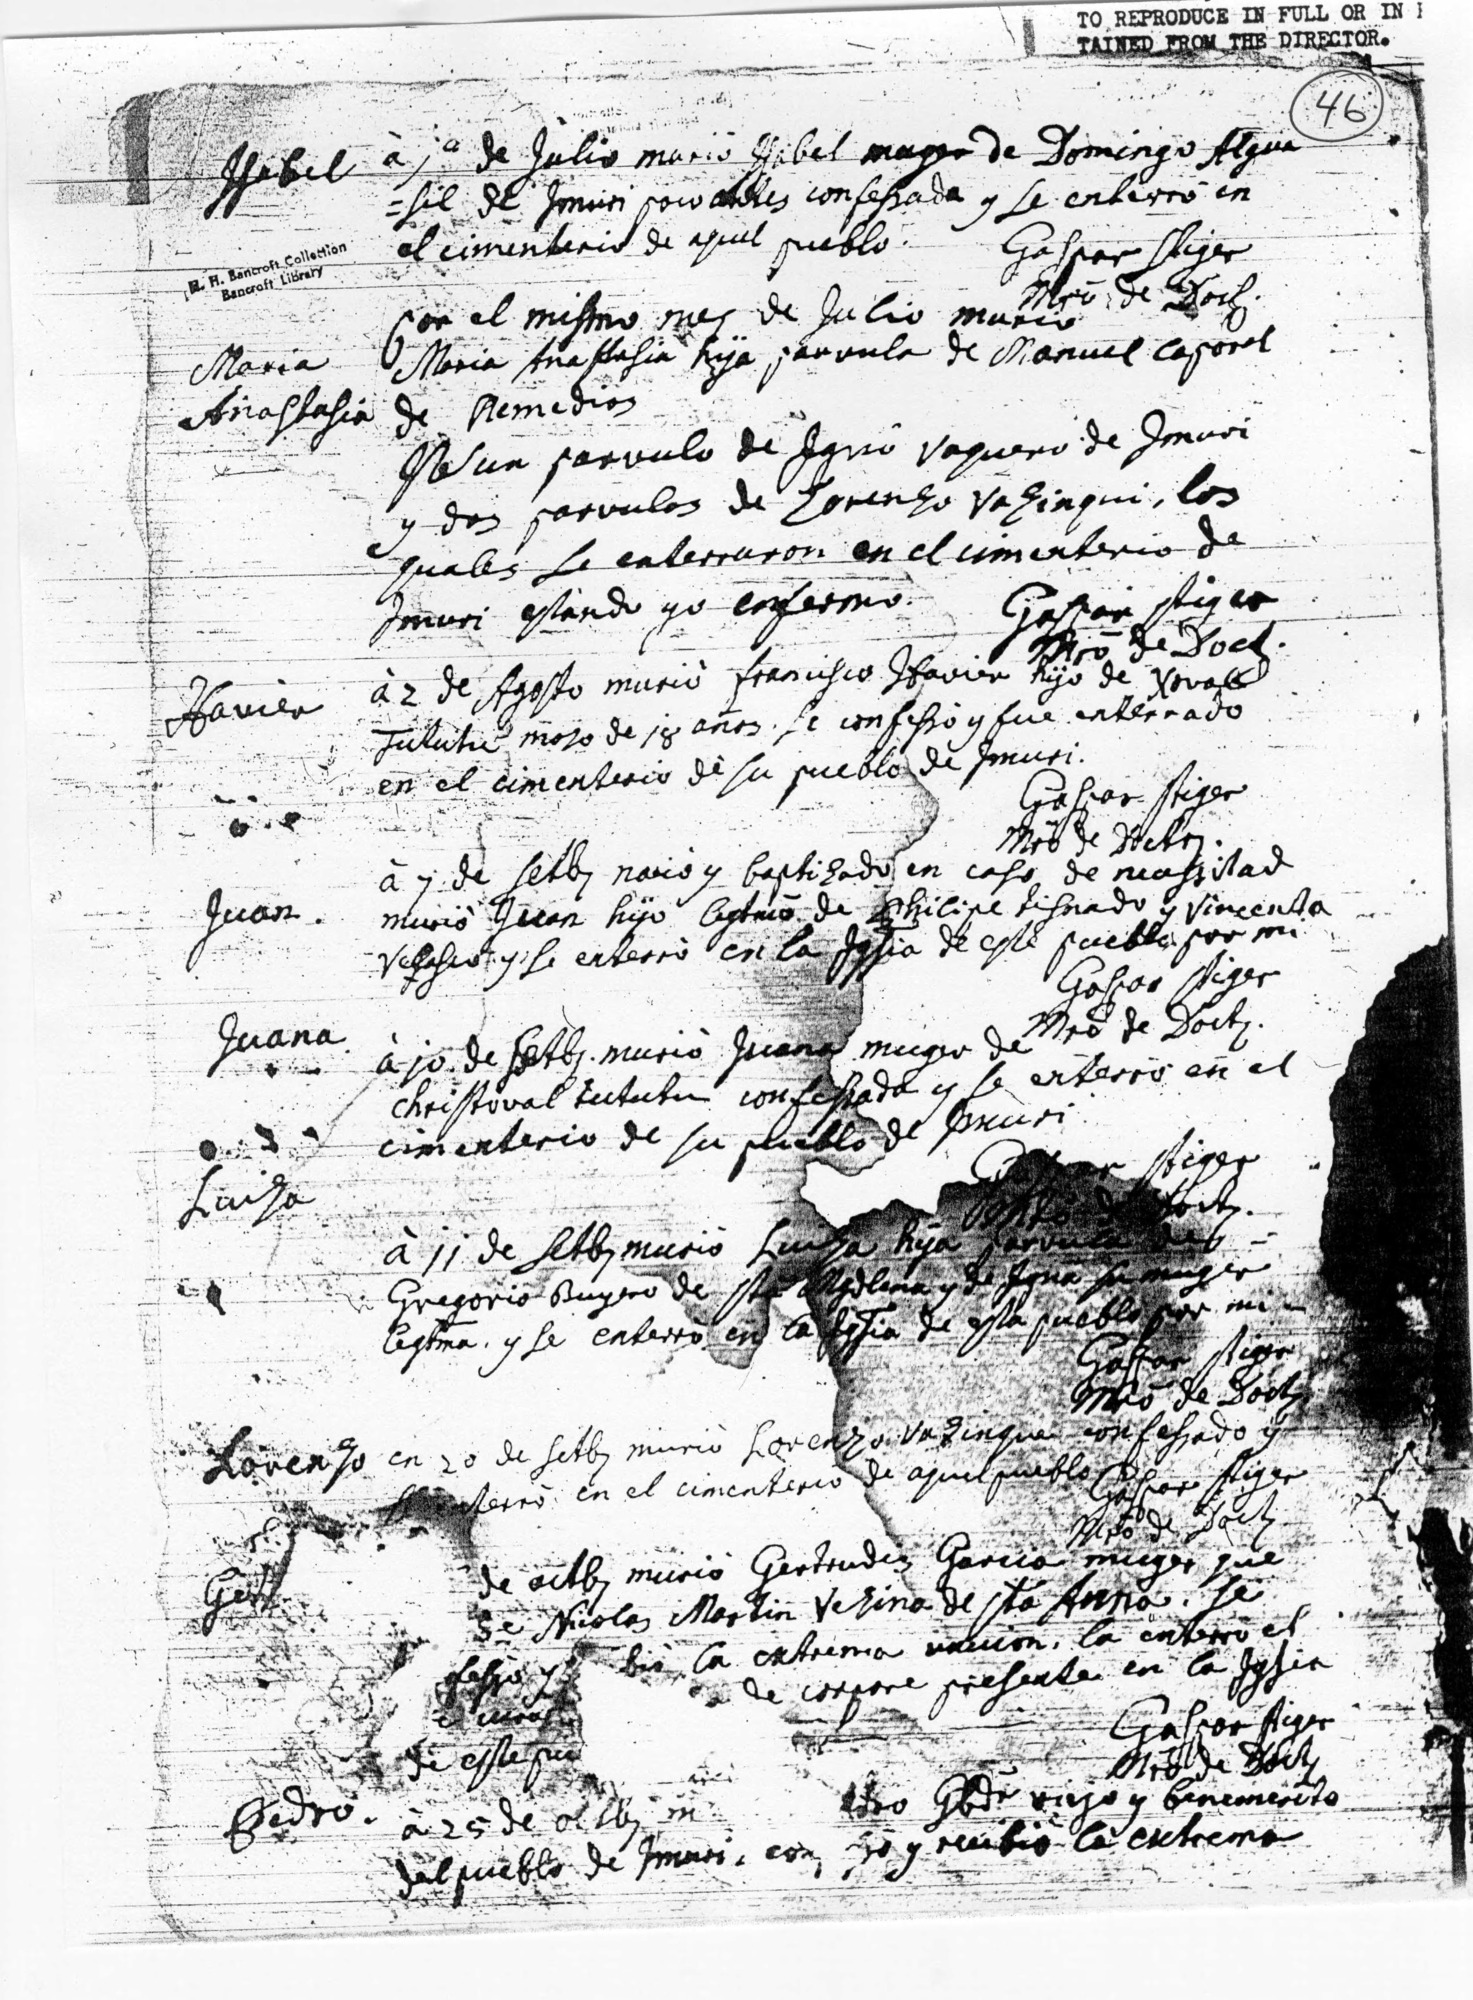 TO REPRODUCE IN FULL OR IN
TAINED FROM THE DIRECTOR.
46
Ysabel
à ja de Julio murió Ysabel muger de Domingo Algua
=sil de Jmuri poco antes confessada y se enterrò en
el cimenterio de aquel pueblo.
Gaspar Stiger
Mro de Doct.
H. H. Bancroft Collection
Bancroft Library
por el mismo mes de Julio murió
Maria
Anastasia
Maria Anastasia hija parvula de Manuel caporal
de Remedios
Yt un parvulo de Jgnio vaquero de Jmuri
y dos parvulos de Lorenso Vazinqui, los
quales se enterraron en el cimenterio de
Jmuri estando yo enfermo.
Gaspar Stiger
Mro de Doct.
Xavier
à 2 de Agosto murió francisco Xavier hijo de
Tututu moso de 18 años. se confessò y fue enterrado
en el cimenterio de su pueblo de Jmuri.
Gaspar Stiger
Mro de Doctr.
Juan.
à 7 de setbr nació y baptizado en caso de necessitad
murió Juan hijo legtmo de Philipe tisnado y Vincenta
Velasco y se enterrò en la Jglia de este pueblo por mi
Gaspar Stiger
Mro de Doctr.
Juana
à 10 de setbr. murió Juana muger de
christoval tututu confessada y se enterrò en el
cimenterio de su pueblo de Jmuri
Stiger
Luisa
à 11 de setbr murió Luisa hija parvula de
Gregorio de sta Mgdlena y de Jgna su muger
legtma. y se enterrò en la Jglia de este pueblo por mi
Gaspar Stiger
Mro de Doctr.
Lorenso
en 20 de setbr murió Lorenzo Vazinqui confessado y
se enterrò en el cimenterio de aquel pueblo
Gaspar Stiger
Mro de Doctr
Gert
de octbr murió Gertrudes Garcia muger que
Nicolas Martin Vezino de sta Anna. se
fessò y bió la extrema uncion. la enterrò el
de corpore presente en la Jglia
de este pu
Gaspar Stiger
Mro de Doctr
Pedro.
à 25 de octbr m dro Gbdr viejo y benemerito
del pueblo de Jmuri, con sò y recibió la extrema